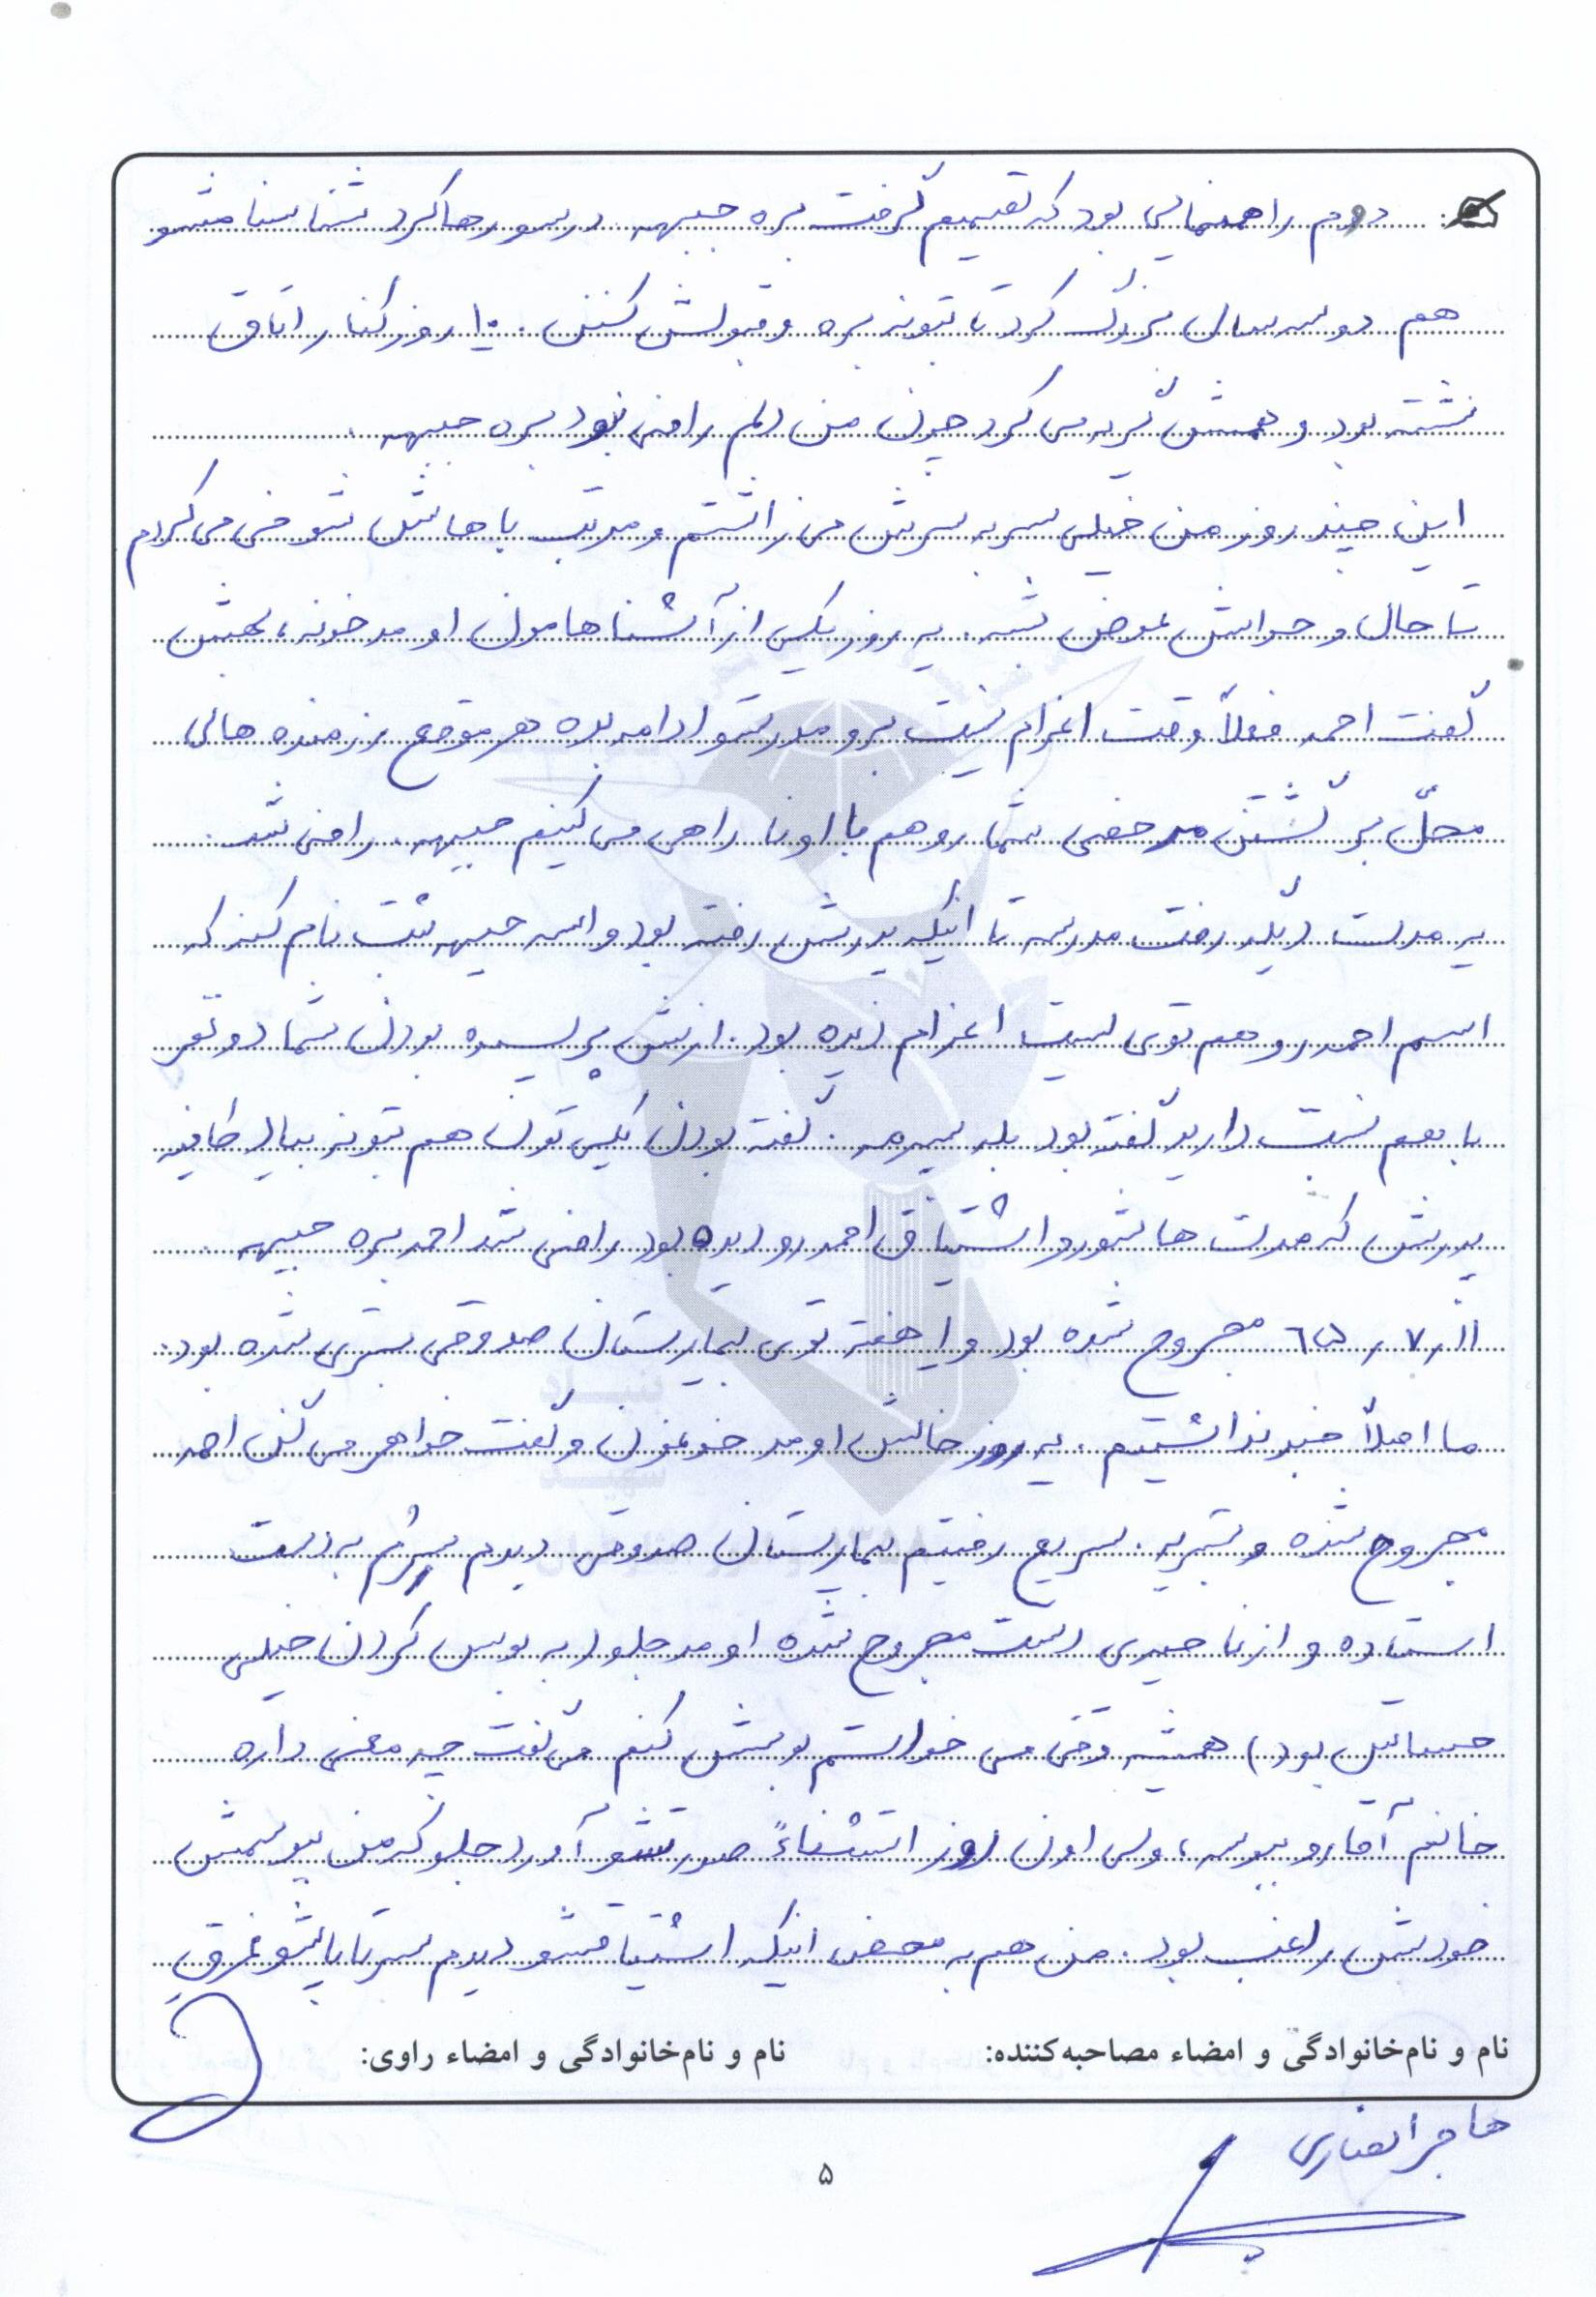 دوم راهنمایی بود که تصمیم گرفت بره جبهه. درسو رها کرد شناسنامشو
هم دو سه سال بزرگ کرد تا بتونه بره و قبولش کنن. ۱۰ روز کنار اتاق
نشسته بود و همش گریه می کرد چون من دلم راضی نبود بره جبهه.
این چند روز من خیلی سر به سرش می زاشتم و مرتب باهاش شوخی می کردم
تا حال و هواش عوض بشه. یه روز یکی از آشناهامون اومد خونه، بهش
گفت احمد فعلاً وقت اعزام نیست برو مدرستو ادامه بده هر موقع رزمنده های
محلّ برگشتن مرخصی شما رو هم با اونا راهی می کنیم جبهه. راضی شد.
یه مدت دیگه رفت مدرسه تا اینکه پدرش رفته بود واسه جبهه ثبت نام کنه که
اسم احمد رو هم توی لیست اعزام دیده بود. ازش پرسیده بودن شما دو نفر
با هم نسبت دارید گفته بود بله پسرمه. گفته بودن یکی تون هم بتونه بیاد کافیه
پدرش که مدت ها شور و اشتیاق احمد رو دیده بود راضی شد احمد بره جبهه
۶۵/۷/۱۱ مجروح شده بود و ۱ هفته توی بیمارستان صدوقی بستری شده بود.
ما اصلاً خبر نداشتیم. یه روز خالش اومد خونمون و گفت خواهر می گن احمد
مجروح شده و بستریه. سریع رفتیم بیمارستان صدوقی دیدم پسرم به دست
استاده و از ناحیه ی دست مجروح شده اومد جلو (به بوس کردن خیلی
حساس بود) همیشه وقتی می خواستم بوسش کنم می گفت چه معنی داره
خانم آقا رو ببوسه، ولی اون روز استثناءً صورتشو آورد جلو که من ببوسمش
خودش راغب بود. من هم به محض اینکه اشتیاقشو دیدم سرتا پاشو غرق
نام و نام‌خانوادگی و امضاء مصاحبه‌کننده: نام و نام‌خانوادگی و امضاء راوی:
هاجر انصاری
۵